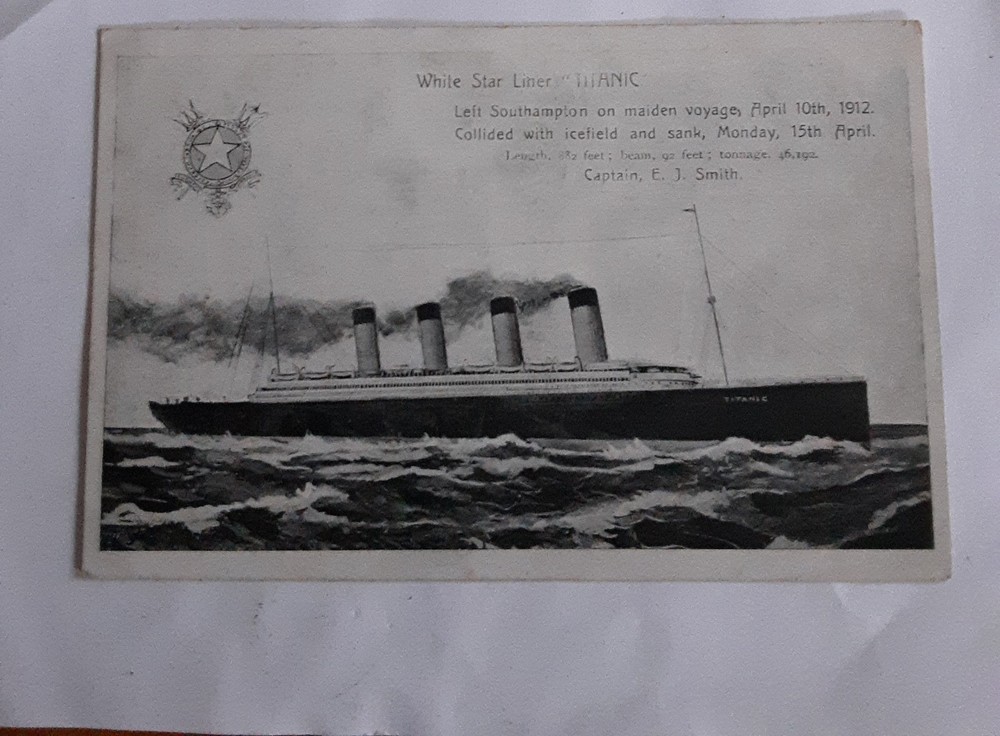 White Star Liner "TITANIC"
Left Southampton on maiden voyage, April 10th, 1912.
Collided with icefield and sank, Monday, 15th April.
Length, 882 feet; beam, 92 feet; tonnage, 46,192.
Captain, E. J. Smith.
TITANIC